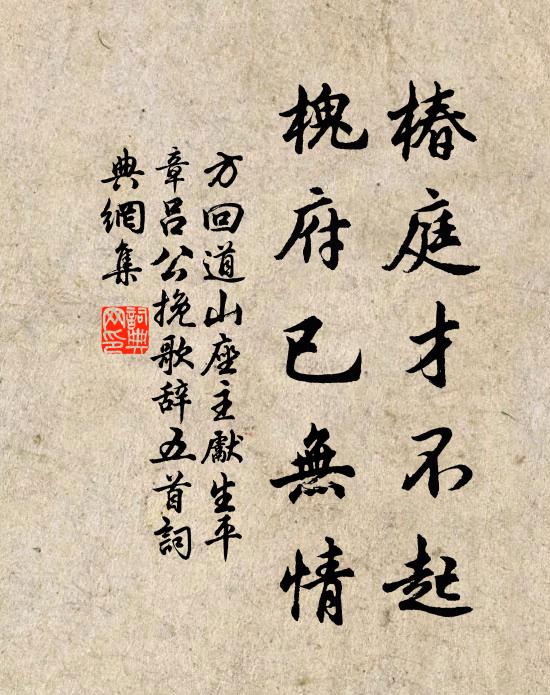 椿庭才不起
槐府已無情
方回道山座主獻生平
章呂公挽歌辞五首詞
典網集
詞典網印